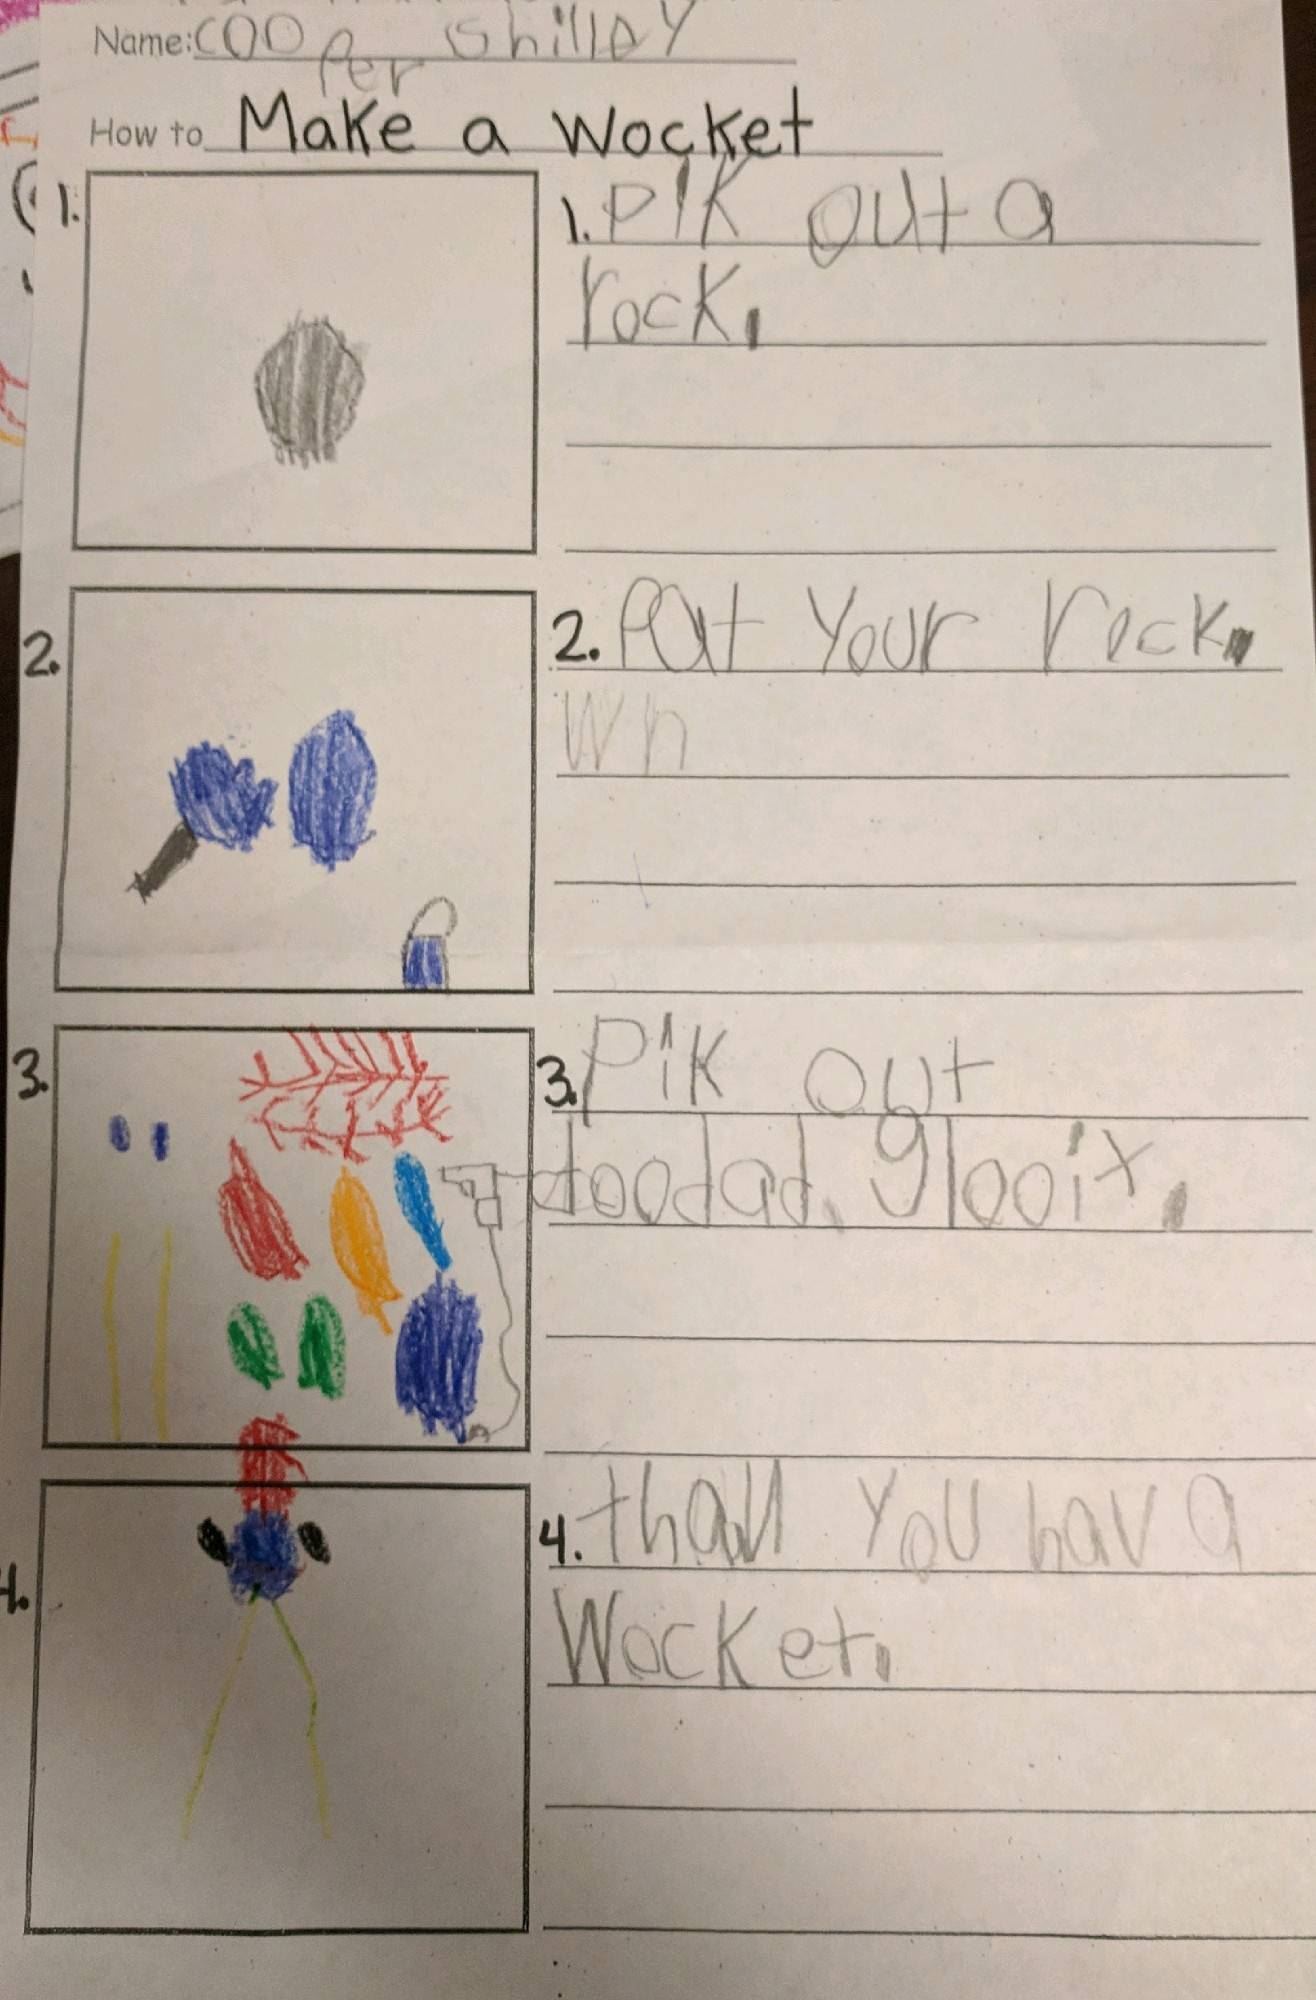 Name: Cooper Shilley
How to Make a Wocket
1.
1. Pik out a
rock.
2.
2. Pat your rock.
wh
3.
3. Pik out
doodad. glooit.
4.
4. thall you hav a
Wocket.